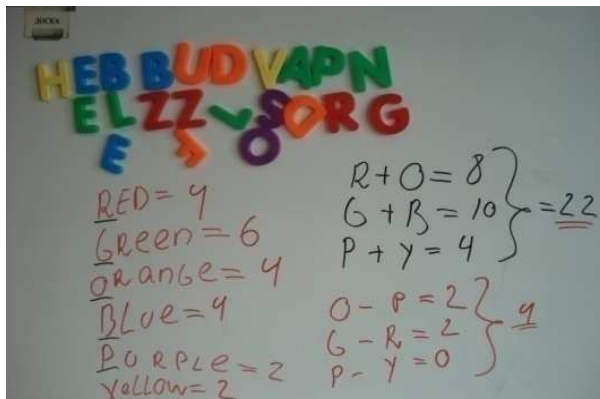 ДОСКА
HEB BUD VAPN
EL ZZ SDRG
E F O
RED = 4
GReen = 6
ORANGe = 4
BLue = 4
PURPLe = 2
Yellow = 2
R + O = 8
G + B = 10
P + Y = 4
= 22
O - P = 2
G - R = 2
P - Y = 0
4